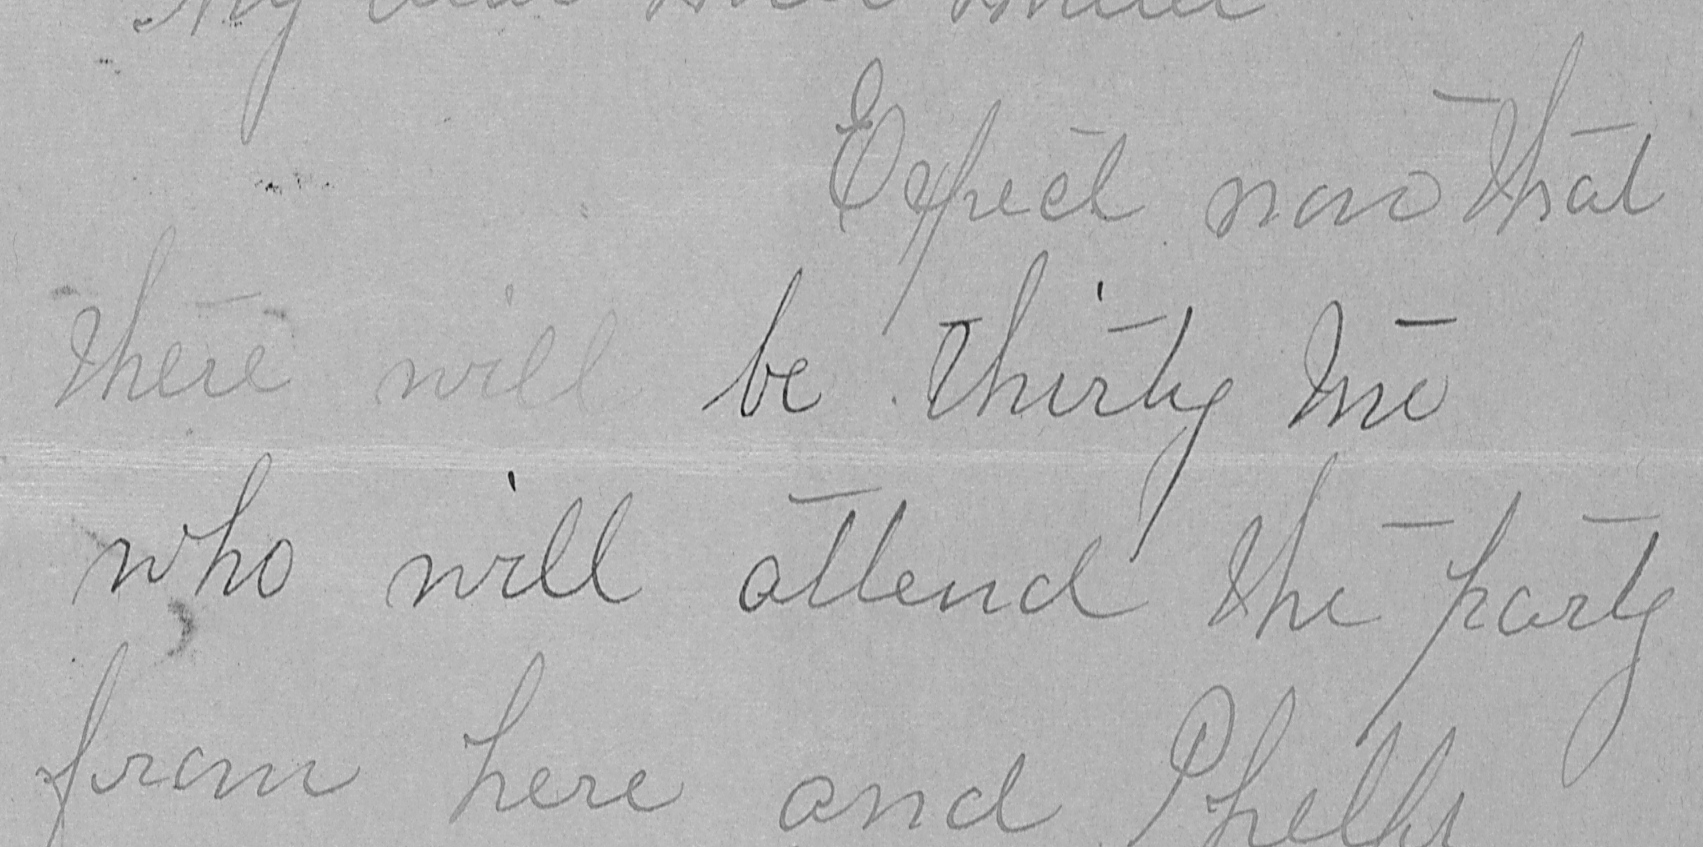 My dear
Expect now that
there will be thirty two
who will attend the party
from here and